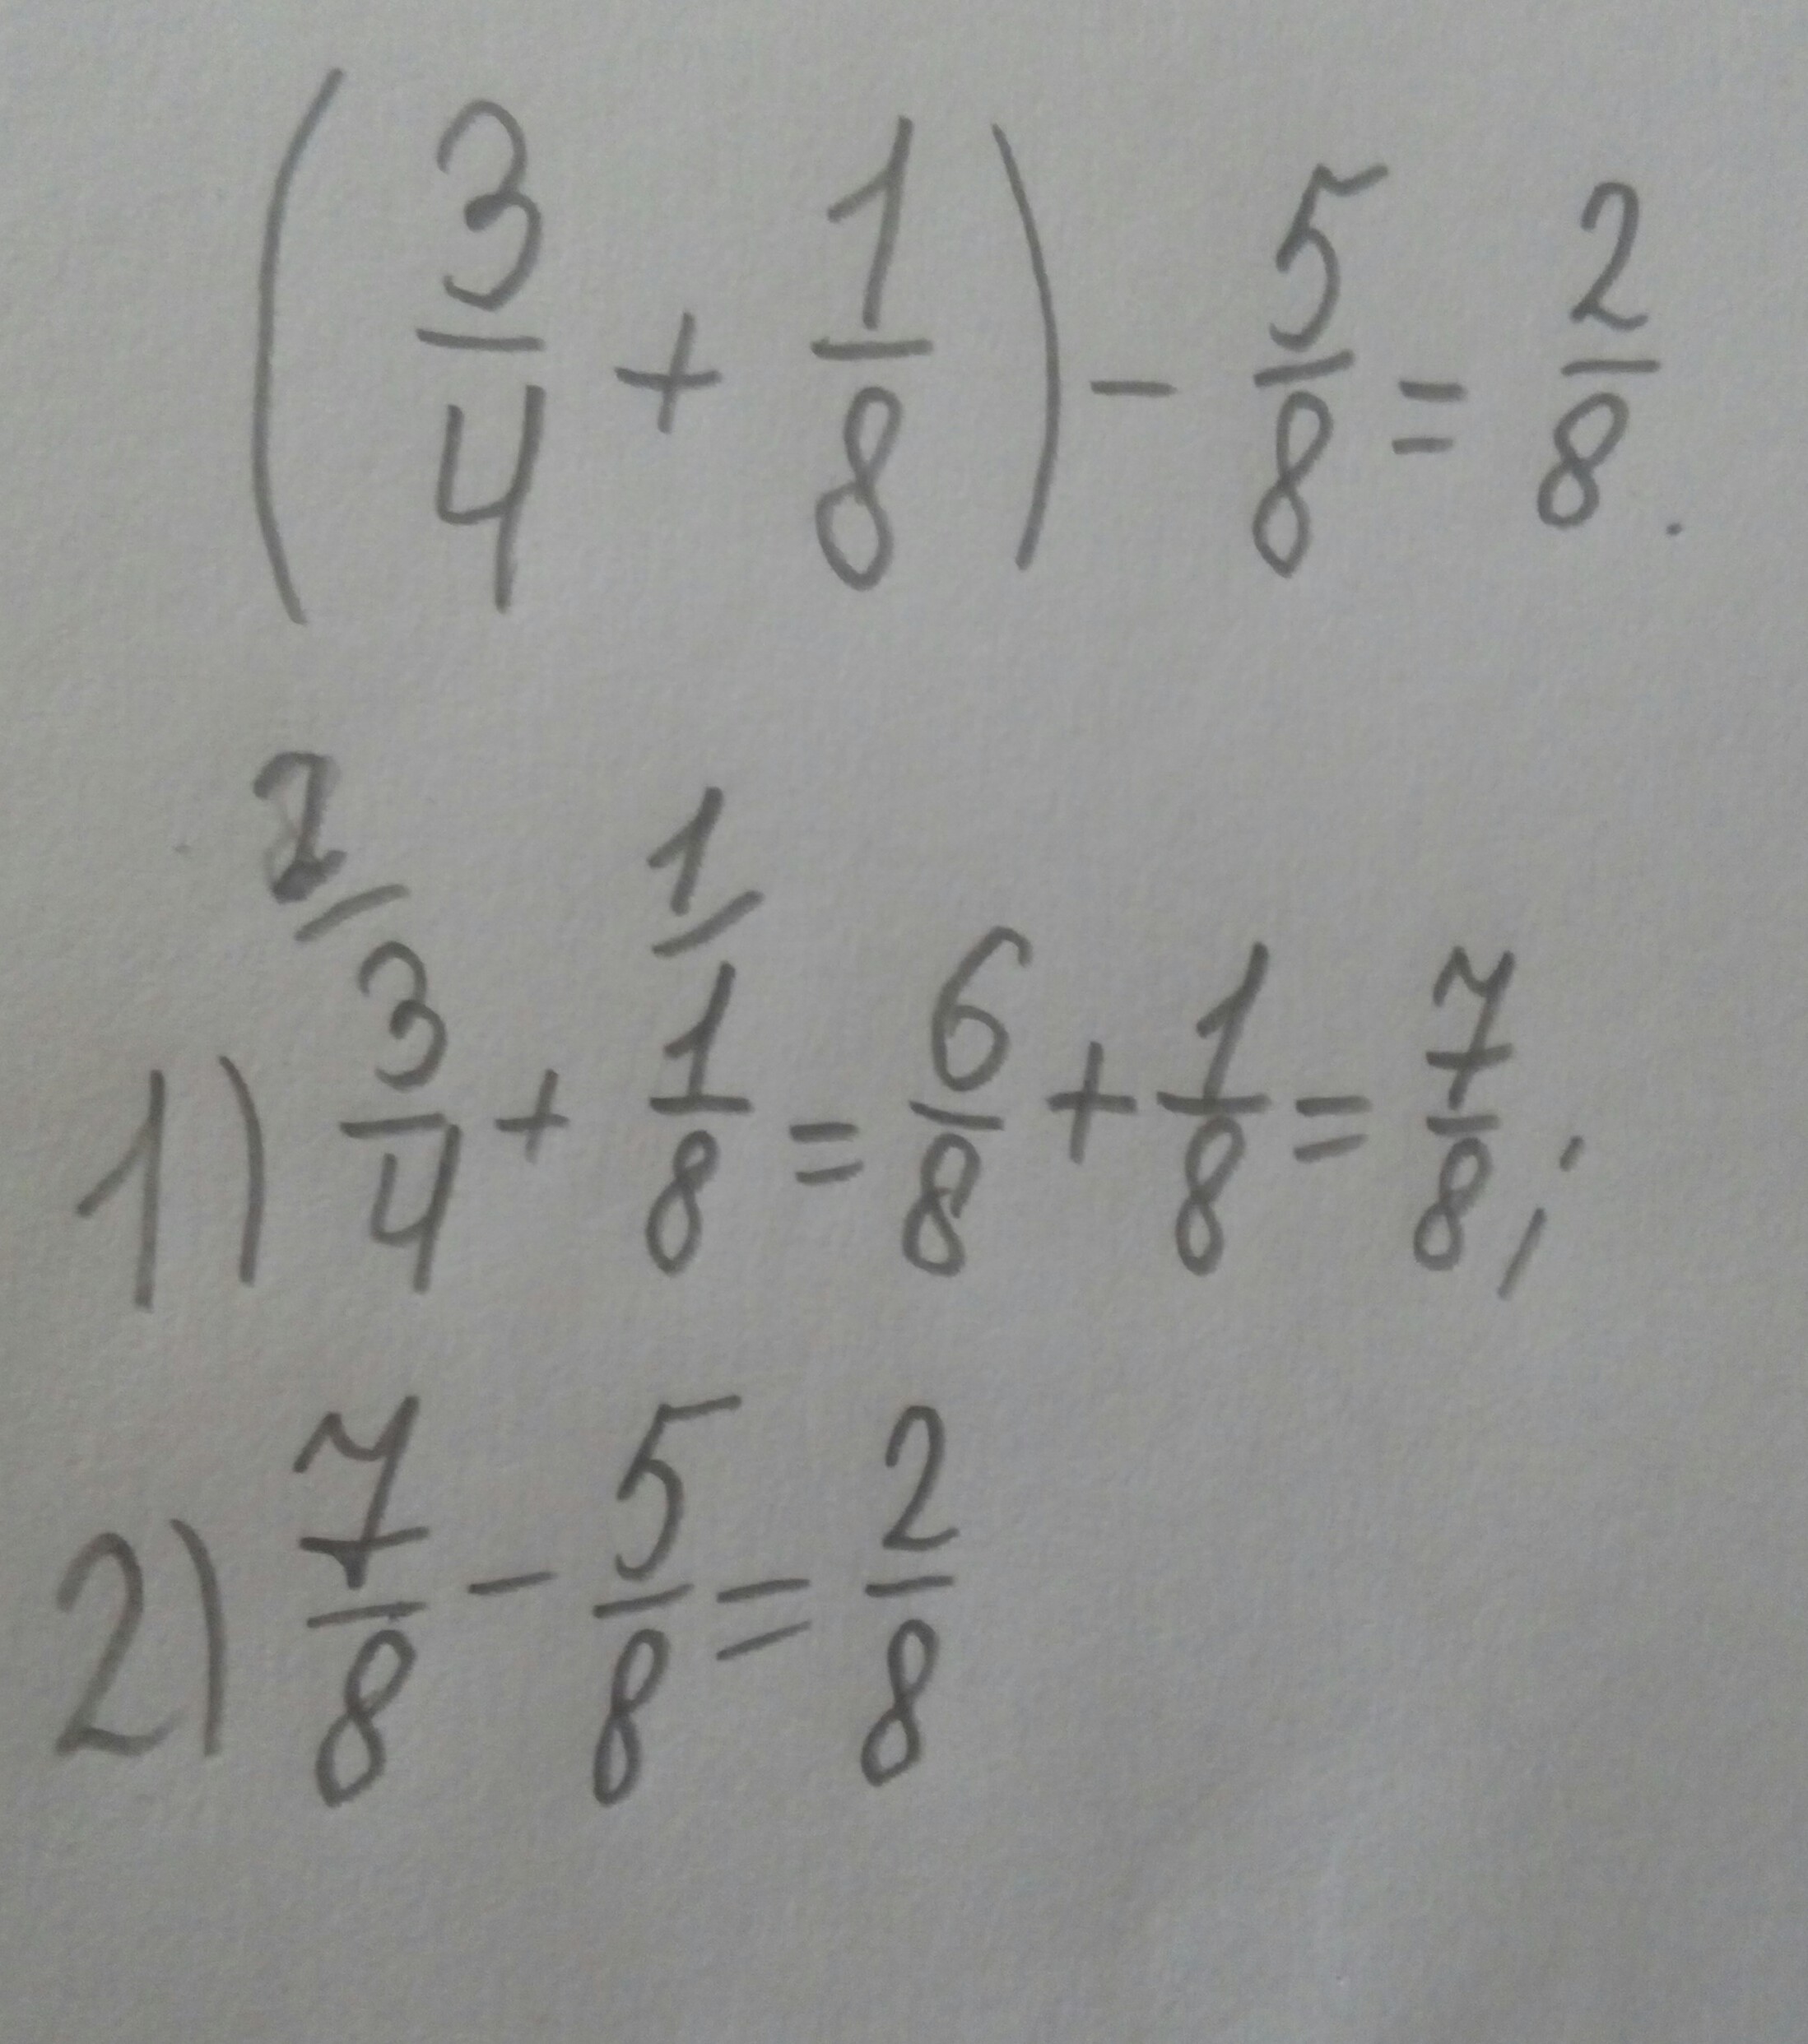 (3/4 + 1/8) - 5/8 = 2/8.
2/ 1/
1) 3/4 + 1/8 = 6/8 + 1/8 = 7/8;
2) 7/8 - 5/8 = 2/8